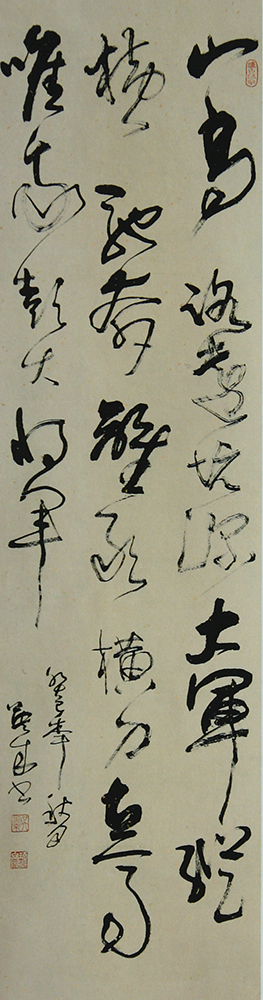 山高路遠坑深大軍縱
橫馳奔誰敢橫刀立馬
唯我彭大将軍
癸巳年秋月
書